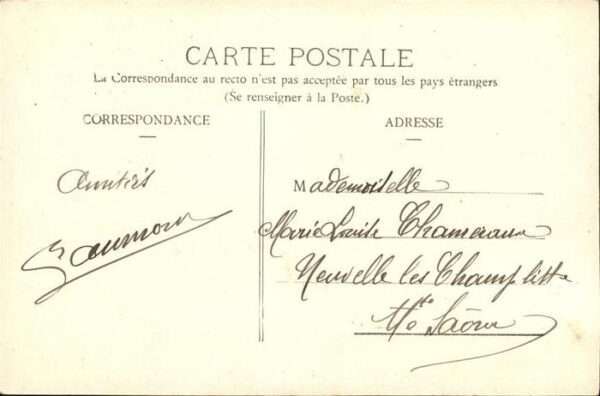 CARTE POSTALE
La Correspondance au recto n'est pas acceptée par tous les pays étrangers
(Se renseigner à la Poste.)
CORRESPONDANCE
ADRESSE
Amitiés
Mademoiselle
Marie Louise
Neuvelle les Champlitte
Hte Saône